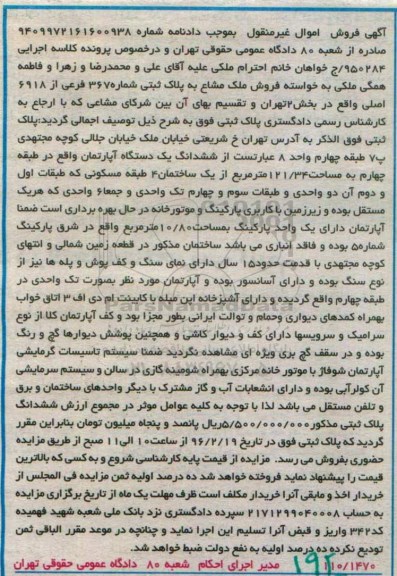 آگهی فروش اموال غیرمنقول بموجب دادنامه شماره ۹۴۰۹۹۷۲۱۶۱۶۰۰۹۳۸
صادره از شعبه ۸۰ دادگاه عمومی حقوقی تهران و درخصوص پرونده کلاسه اجرایی
۹۵۰۲۸۴/ج خواهان خانم احترام ملکی علیه آقای علی و محمدرضا و زهرا و فاطمه
همگی ملکی به خواسته فروش ملک مشاع به پلاک ثبتی شماره۳۶۷ فرعی از ۶۹۱۸
اصلی واقع در بخش۲تهران و تقسیم بهای آن بین شرکای مشاعی که با ارجاع به
کارشناس رسمی دادگستری پلاک ثبتی فوق به شرح ذیل توصیف اجمالی گردید:پلاک
ثبتی فوق الذکر به آدرس تهران خ شریعتی خیابان ملک خیابان جلالی کوچه مجتهدی
پ۷ طبقه چهارم واحد ۸ عبارتست از ششدانگ یک دستگاه آپارتمان واقع در طبقه
چهارم به مساحت۱۲۱/۳۴مترمربع از یک ساختمان۴ طبقه مسکونی که طبقات اول
و دوم آن دو واحدی و طبقات سوم و چهارم تک واحدی و جمعا۶ واحدی که هریک
مستقل بوده و زیرزمین با کاربری پارکینگ و موتورخانه در حال بهره برداری است ضمنا
آپارتمان دارای یک واحد پارکینگ بمساحت۱۰/۸۰مترمربع واقع در شرق پارکینگ
شماره۵ بوده و فاقد انباری می باشد ساختمان مذکور در قطعه زمین شمالی و انتهای
کوچه مجتهدی با قدمت حدود۱۵ سال دارای نمای سنگ و کف پوش و پله ها نیز از
نوع سنگ بوده و دارای آسانسور بوده و آپارتمان مورد نظر بصورت تک واحدی در
طبقه چهارم واقع گردیده و دارای آشپزخانه این مبله با کابینت ام دی اف ۳ اتاق خواب
بهمراه کمدهای دیواری وحمام و توالت ایرانی بطور مجزا بود و کف آپارتمان کلا از نوع
سرامیک و سرویسها دارای کف و دیوار کاشی و همچنین پوشش دیوارها گچ و رنگ
بوده و در سقف گچ بری ویژه ای مشاهده نگردید ضمنا سیستم تاسیسات گرمایشی
آپارتمان شوفاژ با موتور خانه مرکزی بهمراه شومینه گازی در سالن و سیستم سرمایشی
آن کولرآبی بوده و دارای انشعابات آب و گاز مشترک با دیگر واحدهای ساختمان و برق
و تلفن مستقل می باشد لذا با توجه به کلیه عوامل موثر در مجموع ارزش ششدانگ
پلاک ثبتی مذکور۵/۵۰۰/۰۰۰/۰۰۰ریال پانصد و پنجاه میلیون تومان بنابراین مقرر
گردید که پلاک ثبتی فوق در تاریخ ۹۶/۲/۱۹ از ساعت۱۰ الی۱۱ صبح از طریق مزایده
حضوری بفروش می رسد. مزایده از قیمت پایه کارشناسی شروع و به کسی که بالاترین
قیمت را پیشنهاد نماید فروخته خواهد شد ده درصد اولیه ثمن مزایده فی المجلس از
خریدار اخذ و مابقی آنرا خریدار مکلف است ظرف مهلت یک ماه از تاریخ برگزاری مزایده
به حساب ۲۱۷۱۲۹۹۰۴۰۰۰۸ سپرده دادگستری نزد بانک ملی شعبه شهید فهمیده
کد۳۴۲ واریز و قبض آنرا تسلیم این اجرا نماید و چنانچه در موعد مقرر الباقی ثمن
تودیع نکرده ده درصد اولیه به نفع دولت ضبط خواهد شد.
۱۱۰/۱۴۷۰ مدیر اجرای احکام شعبه ۸۰ دادگاه عمومی حقوقی تهران
۱۹۲